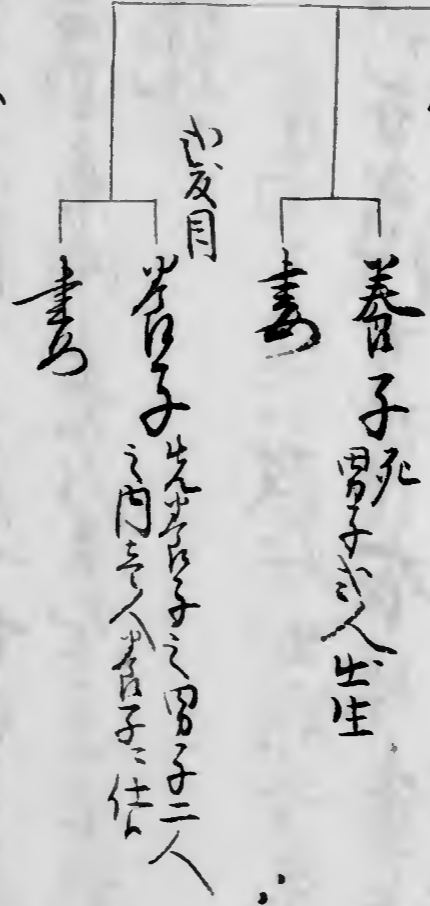 養子
死
男子弐人出生
妻
弐度目
養子
先養子之男子二人
之内壱人養子ニ仕候
妻